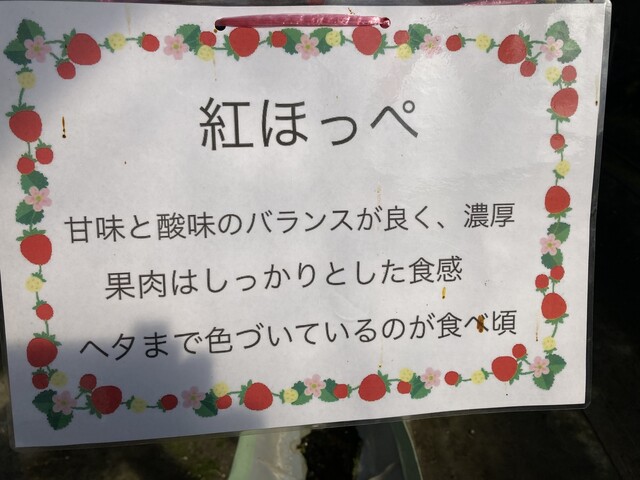 紅ほっぺ
甘味と酸味のバランスが良く、濃厚
果肉はしっかりとした食感
ヘタまで色づいているのが食べ頃